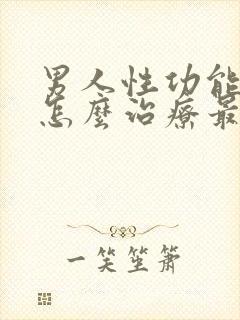 男人性功能
怎麼治療最
一笑笙簫